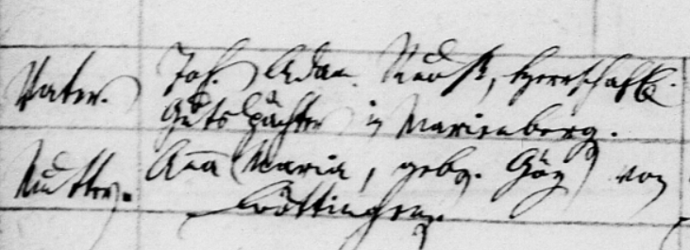 Vater. Joh. Adam Neuß, herrschaftl.
Gutspächter in Marienberg.
Mutter. Anna Maria, geb. Götz von
Böttingen.